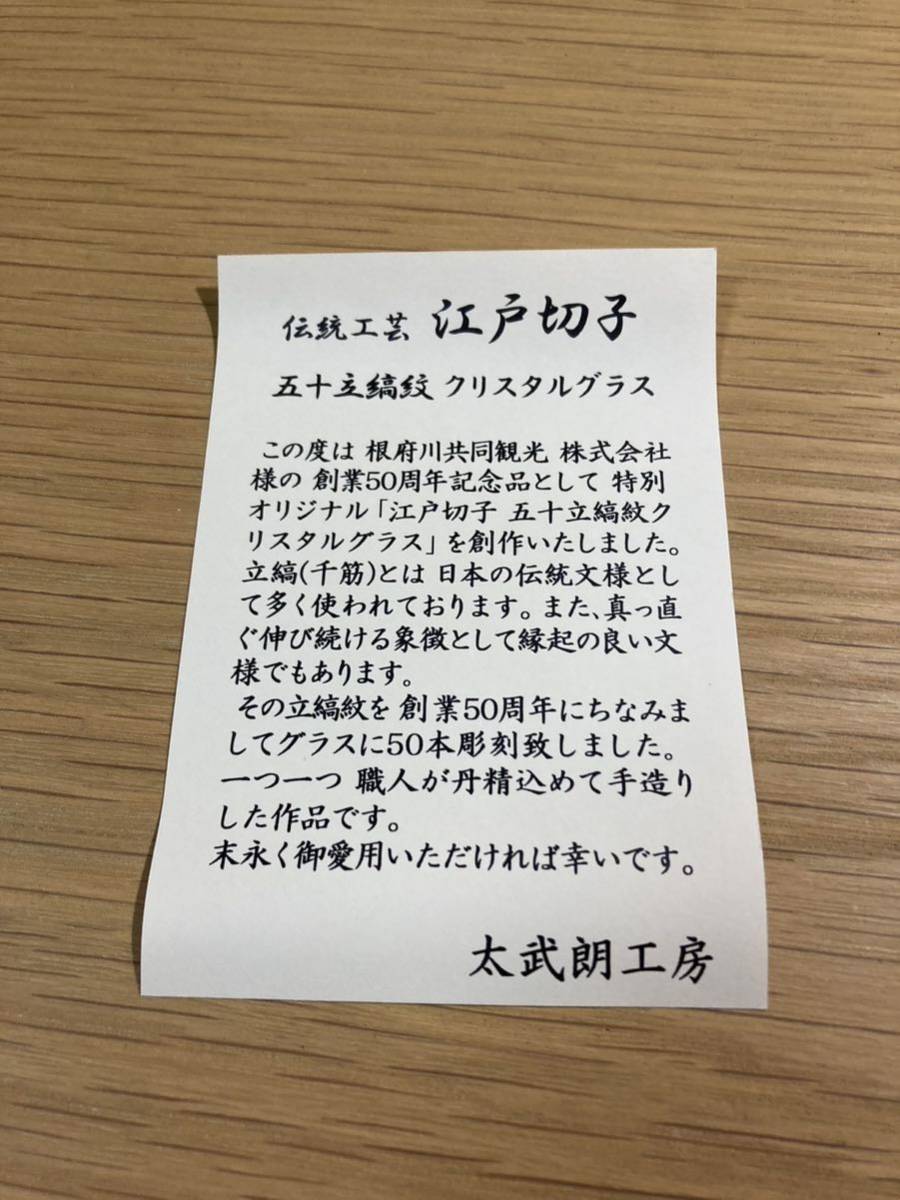 伝統工芸 江戸切子
五十立縞紋 クリスタルグラス
この度は 根府川共同観光 株式会社
様の 創業50周年記念品として 特別
オリジナル「江戸切子 五十立縞紋ク
リスタルグラス」を創作いたしました。
立縞(千筋)とは 日本の伝統文様とし
て多く使われております。また、真っ直
ぐ伸び続ける象徴として縁起の良い文
様でもあります。
その立縞紋を 創業50周年にちなみま
してグラスに50本彫刻致しました。
一つ一つ 職人が丹精込めて手造り
した作品です。
末永く御愛用いただければ幸いです。
太武朗工房